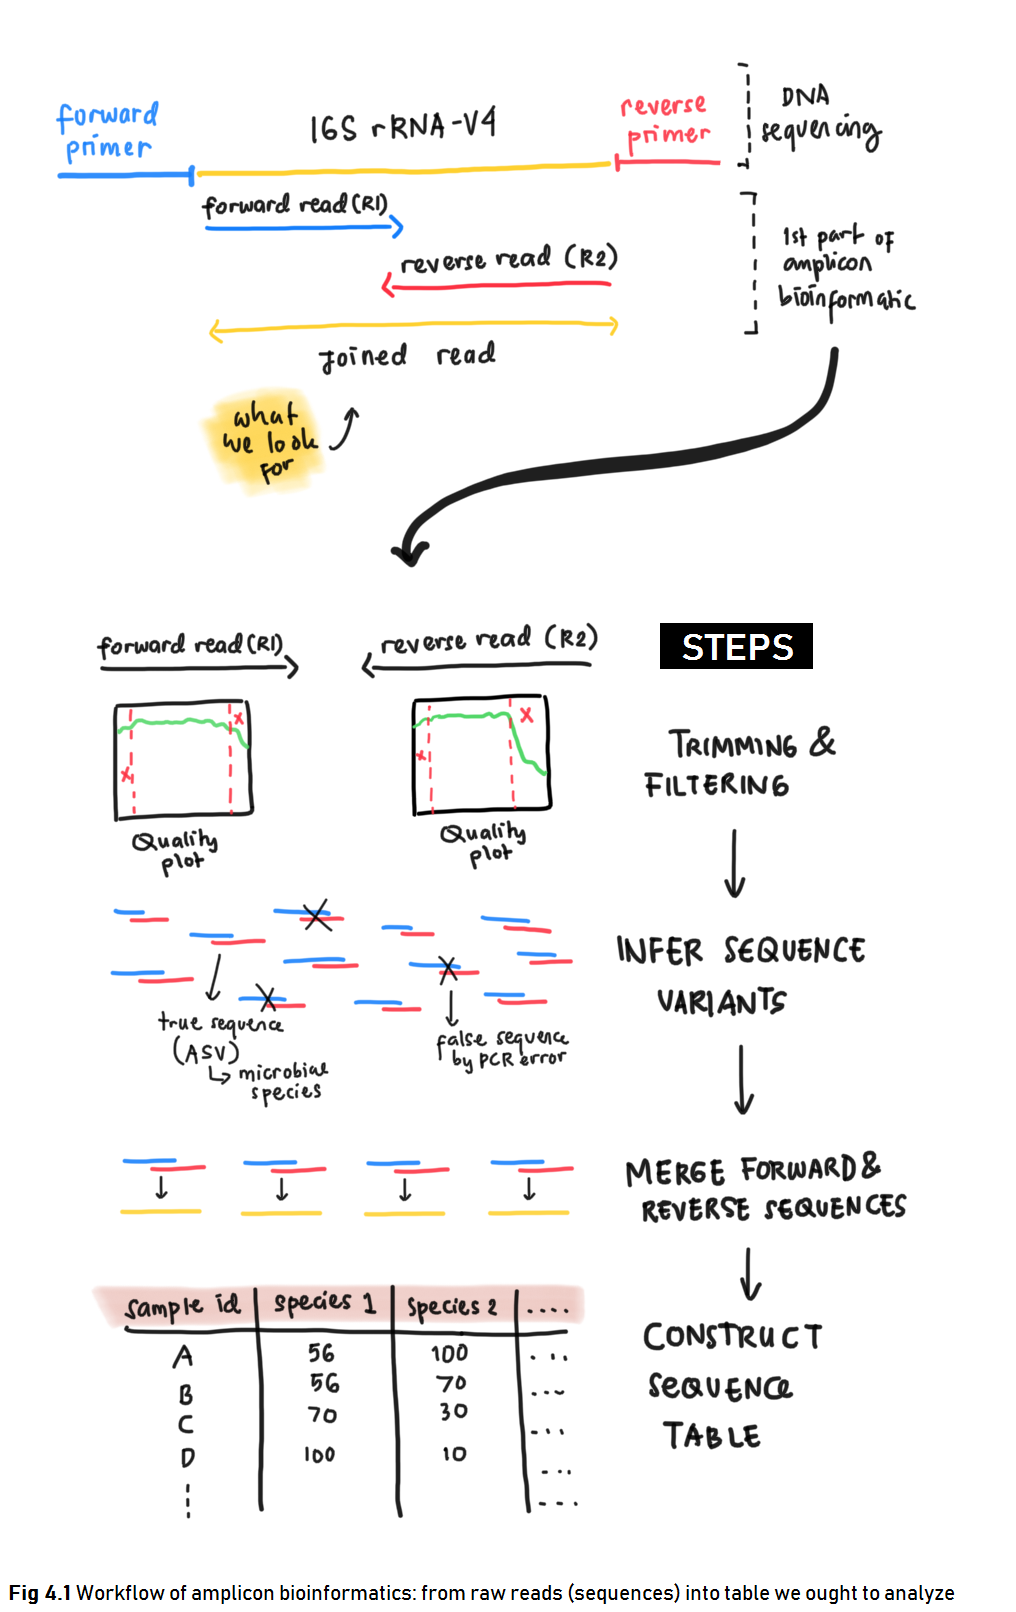 forward
primer
16S rRNA-V4
reverse
primer
DNA
sequencing
forward read (R1)
reverse read (R2)
Joined read
1st part of
amplicon
bioinformatic
what
we look
for
forward read (R1)
reverse read (R2)
STEPS
x
x
x
x
Quality
plot
Quality
plot
TRIMMING &
FILTERING
INFER SEQUENCE
VARIANTS
true sequence
(ASV)
microbial
species
false sequence
by PCR error
MERGE FORWARD &
REVERSE SEQUENCES
sample id species 1 species 2 ....
A 56 100 ...
B 56 70 ...
C 70 30 ...
D 100 10 ...
...
CONSTRUCT
SEQUENCE
TABLE
Fig 4.1 Workflow of amplicon bioinformatics: from raw reads (sequences) into table we ought to analyze